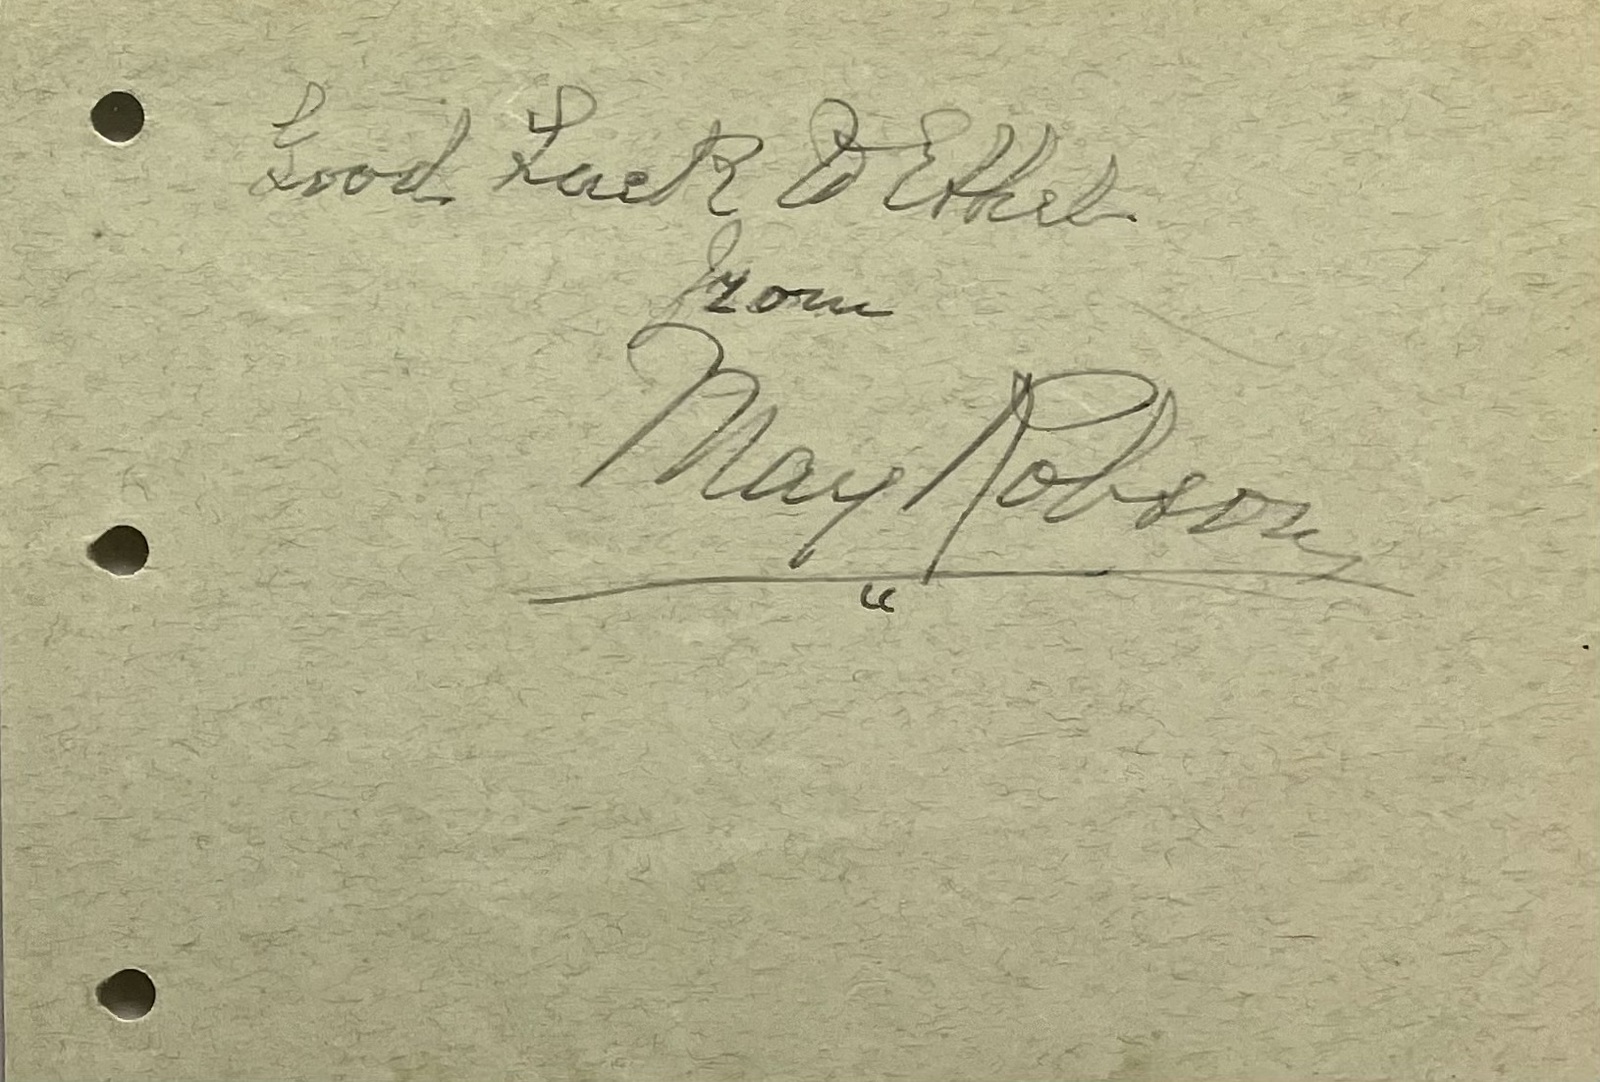 Good Luck to Ethel
from
May Robson
"